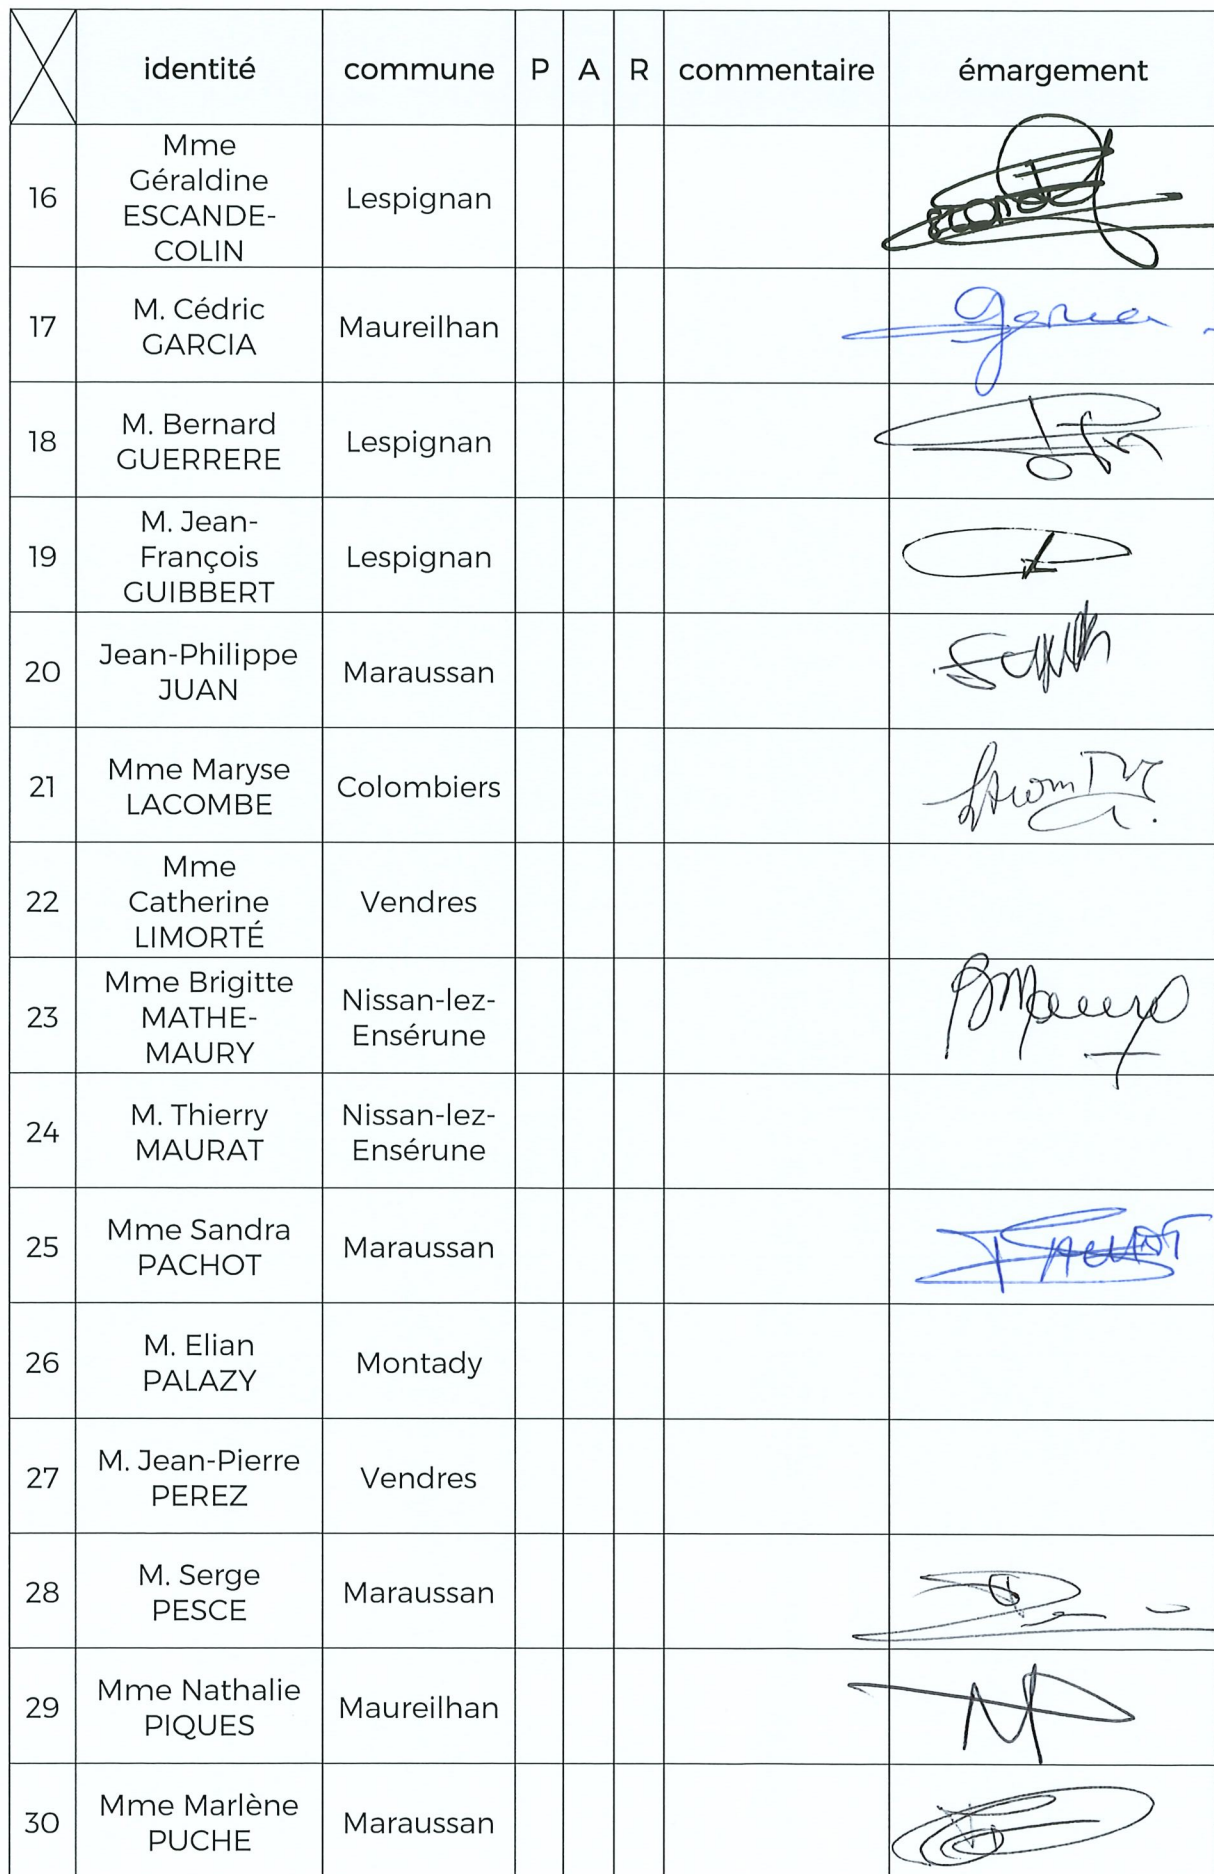 identité commune P A R commentaire émargement
16 Mme
Géraldine
ESCANDE-
COLIN
Lespignan
17 M. Cédric
GARCIA
Maureilhan
Garcia
18 M. Bernard
GUERRERE
Lespignan
19 M. Jean-
François
GUIBBERT
Lespignan
20 Jean-Philippe
JUAN
Maraussan
21 Mme Maryse
LACOMBE
Colombiers
22 Mme
Catherine
LIMORTÉ
Vendres
23 Mme Brigitte
MATHE-
MAURY
Nissan-lez-
Ensérune
BMaury
24 M. Thierry
MAURAT
Nissan-lez-
Ensérune
25 Mme Sandra
PACHOT
Maraussan
PACHOT
26 M. Elian
PALAZY
Montady
27 M. Jean-Pierre
PEREZ
Vendres
28 M. Serge
PESCE
Maraussan
29 Mme Nathalie
PIQUES
Maureilhan
30 Mme Marlène
PUCHE
Maraussan